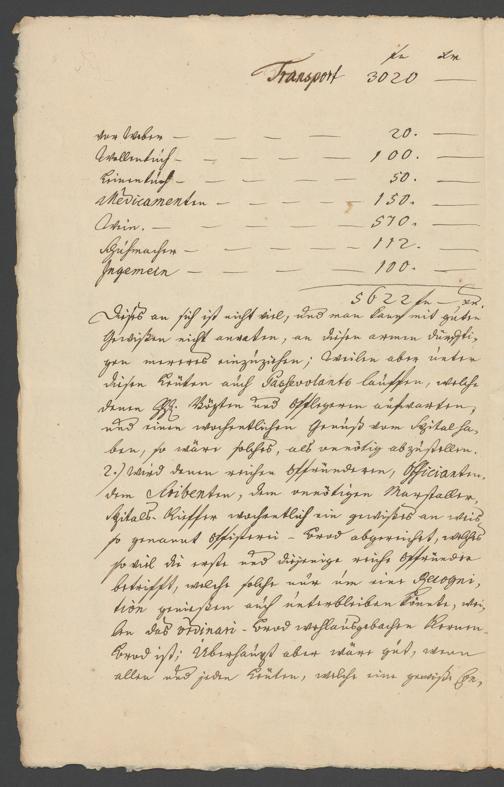 fl. xr.
Transport 3020 —
vor Weber — — — — 20. —
Wollentuch — — — — 100. —
Leinentuch — — — — 50. —
Medicamenten — — — 150. —
Wein. — — — — 570. —
Schuhmacher — — — 112. —
Ingemein — — — — 100. —
5622 fl. — xr.
Dises an sich ist nicht viel, und man kann mit guten
Gewißen nicht anraten, an disen armen dürfti-
gen mereres einzuziehen; Weilen aber unter
disen Leuten auch Passevolants lauffen, welche
denen Vögten und Pflegern aufwarten,
und einen wochentlichen Genuß vom Spital ha-
ben, so wäre solches, als unnötig abzustellen.
2.) Wird denen reichen Pfründeren, Officianten,
dem Scribenten, dem unnötigen Marstaller,
Spitals-Kieffer wochentlich ein gewißes an weis,
so genannt Pfisterei-Brod abgereichet, welches
so viel die erste und diejenige reiche Pfründer
betrifft, welche solche nur um eine Recogni-
tion genießen auch unterbleiben könnte, wei-
len das ordinari-Brod wohlausgebachen Kernen-
Brod ist; Überhaupt aber wäre gut, wenn
allen und jeden Leuten, welche eine gewiße